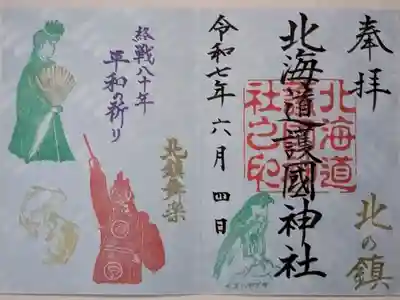 奉拝
北の鎮
北海道護國神社
北海道
護國神
社之印
令和七年六月四日
終戦八十年
平和の祈り
北鎮舞楽